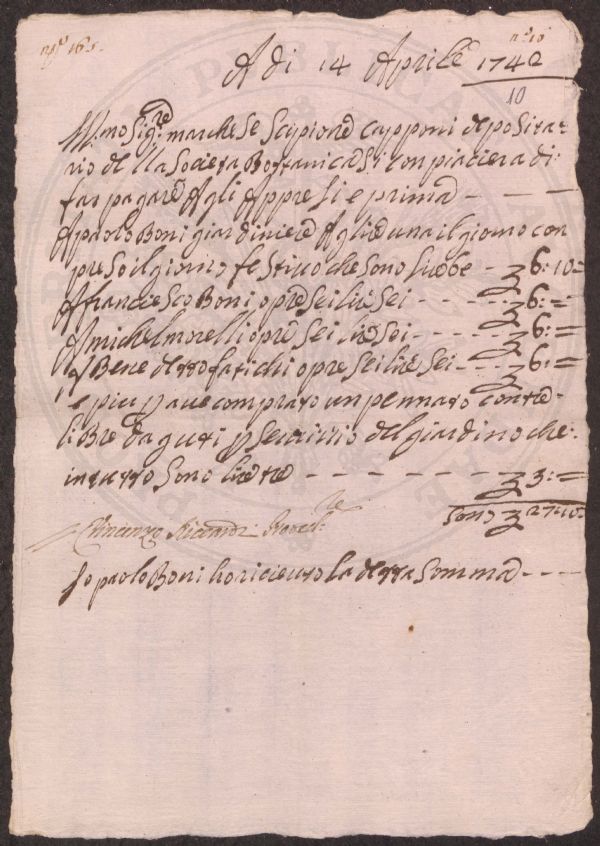 nº 10
A di 14 Aprile 1742
10
Ill:mo Sigre marchese Scipione Capponi deposita=
rio della Societa Bottanica Si conpiacera di
far pagare Agli Appresi e prima - - -
A paolo Boni giardiniere A lire una il giorno con
preso il giorno festivo che sono lire - 6: 10 =
A francesco Boni opre sei lire sei - - - - 6: =
A michel morelli opre sei lire sei - - - - 6: =
A Bene detto fatichi opre sei lire sei - - 6: =
e piu p aue comprato un pennato con tre
libre da guti p servizio del giardino che
in tutto sono lire tre - - - - - - 3: =
Sono 27:10:
Vincenzo Riccardi Proved:re
Io paolo Boni ho riceuto la detta somma - - -